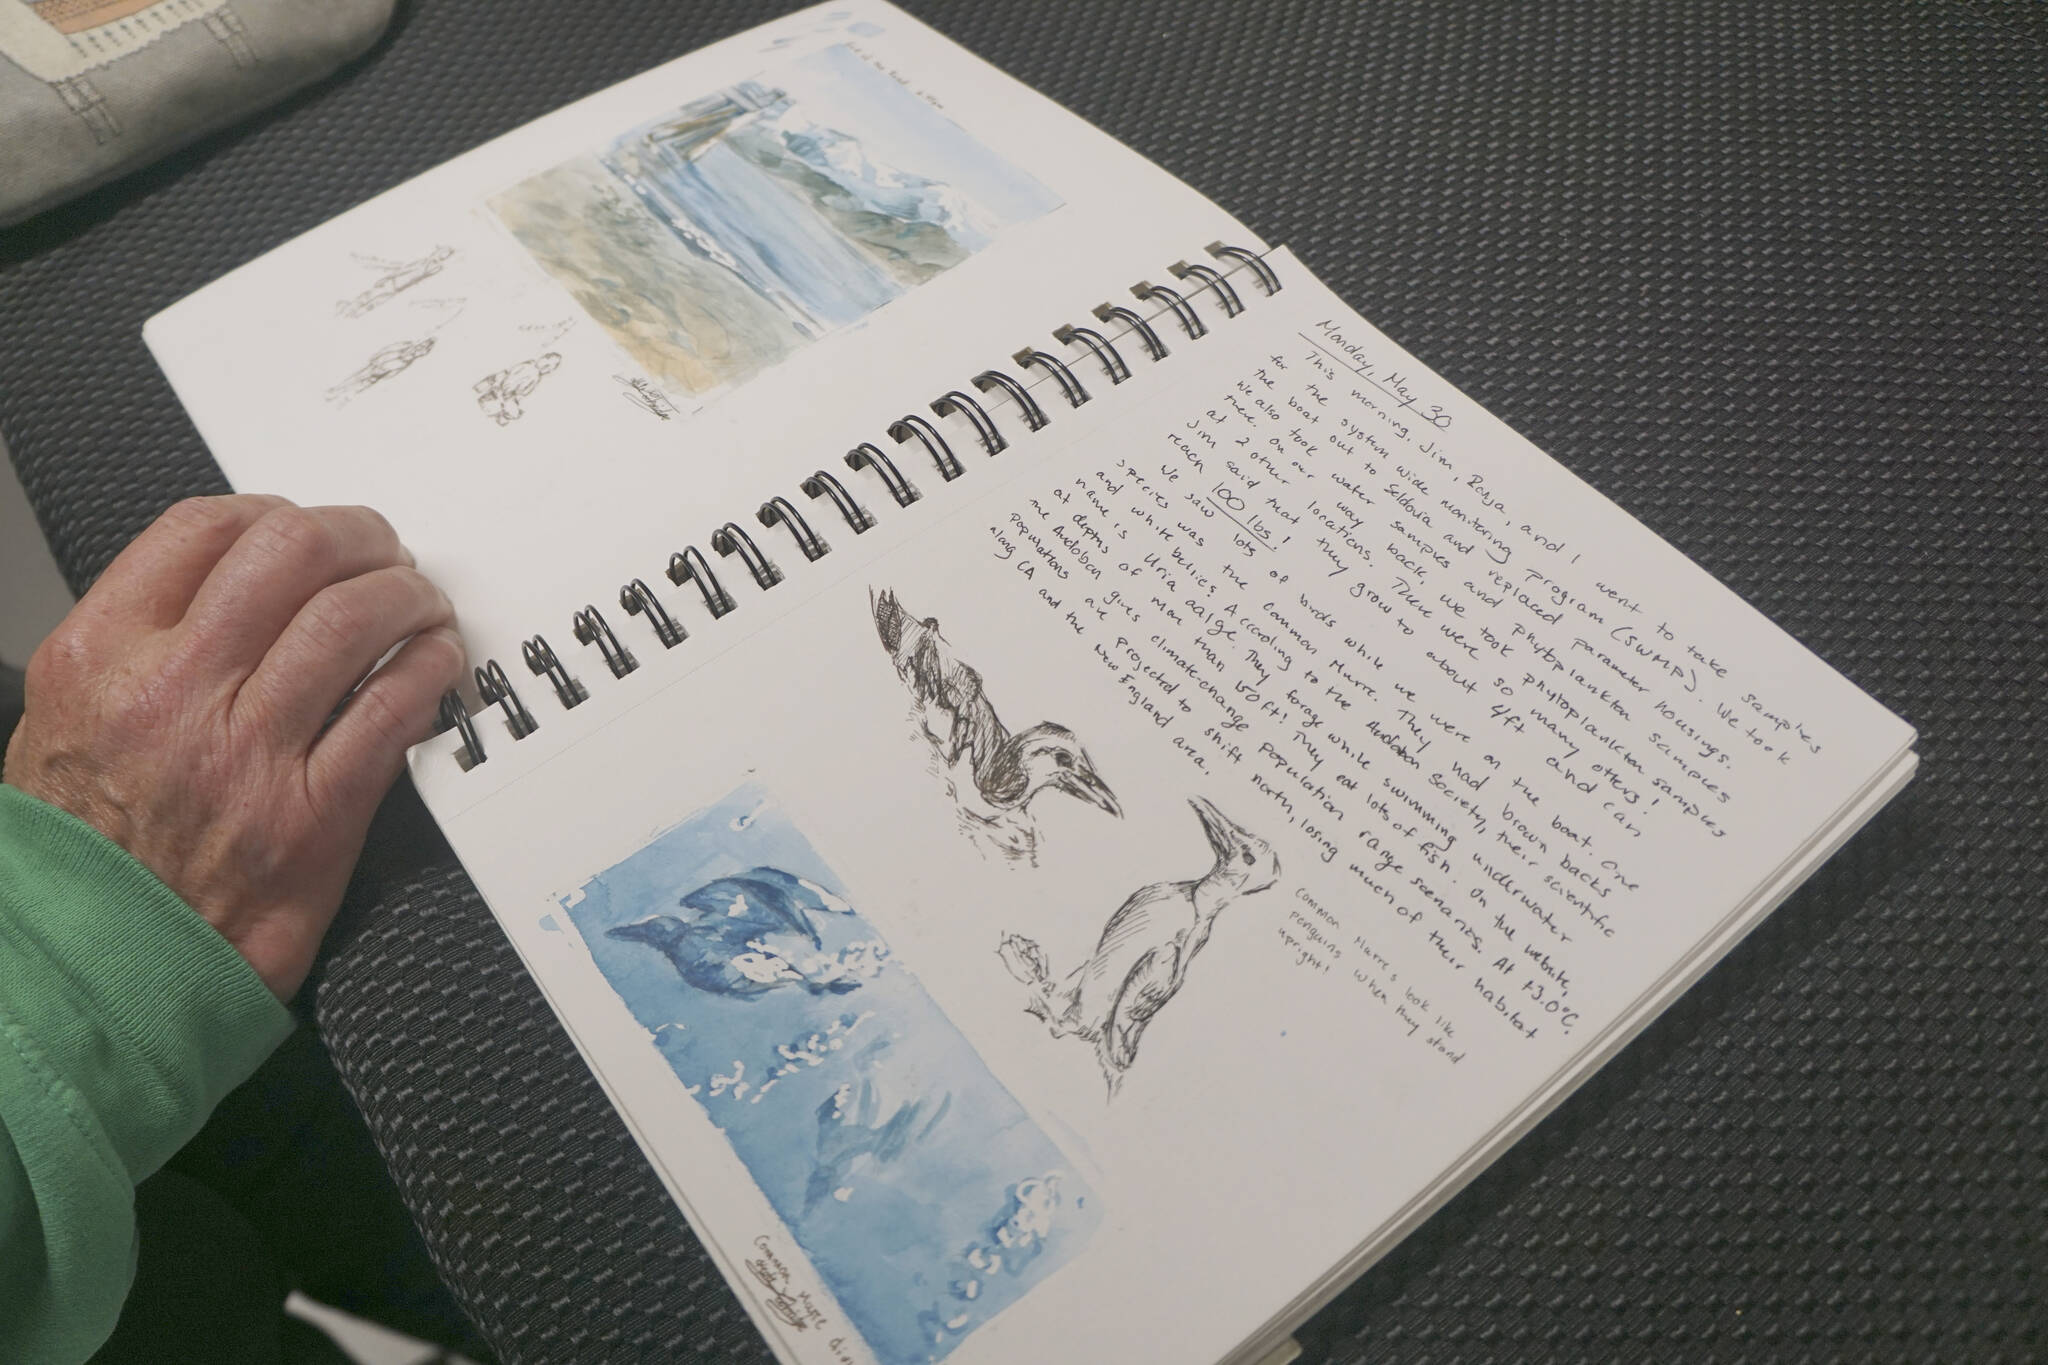 Monday, May 30
This morning, Jim, Ronja, and I went to take samples
for the system wide monitoring program (SWMP). We took
the boat out to Seldovia and replaced parameter housings.
We also took water samples and phytoplankton samples
there. On our way back, we took phytoplankton samples
at 2 other locations. There were so many otters!
Jim said that they grow to about 4ft and can
reach 100 lbs!
We saw lots of birds while we were on the boat. One
species was the Common Murre. They had brown backs
and white bellies! According to the Audobon Society, their scientific
name is Uria aalge. They forage while swimming underwater
at depths of more than 150ft! They eat lots of fish. On the website,
the Audoban gives climate-change population range scenarios. At +3.0°C.
populations are projected to shift north, losing much of their habitat
along CA and the
New England area.
Common Murres look like
penguins when they stand
upright!
Common Murre